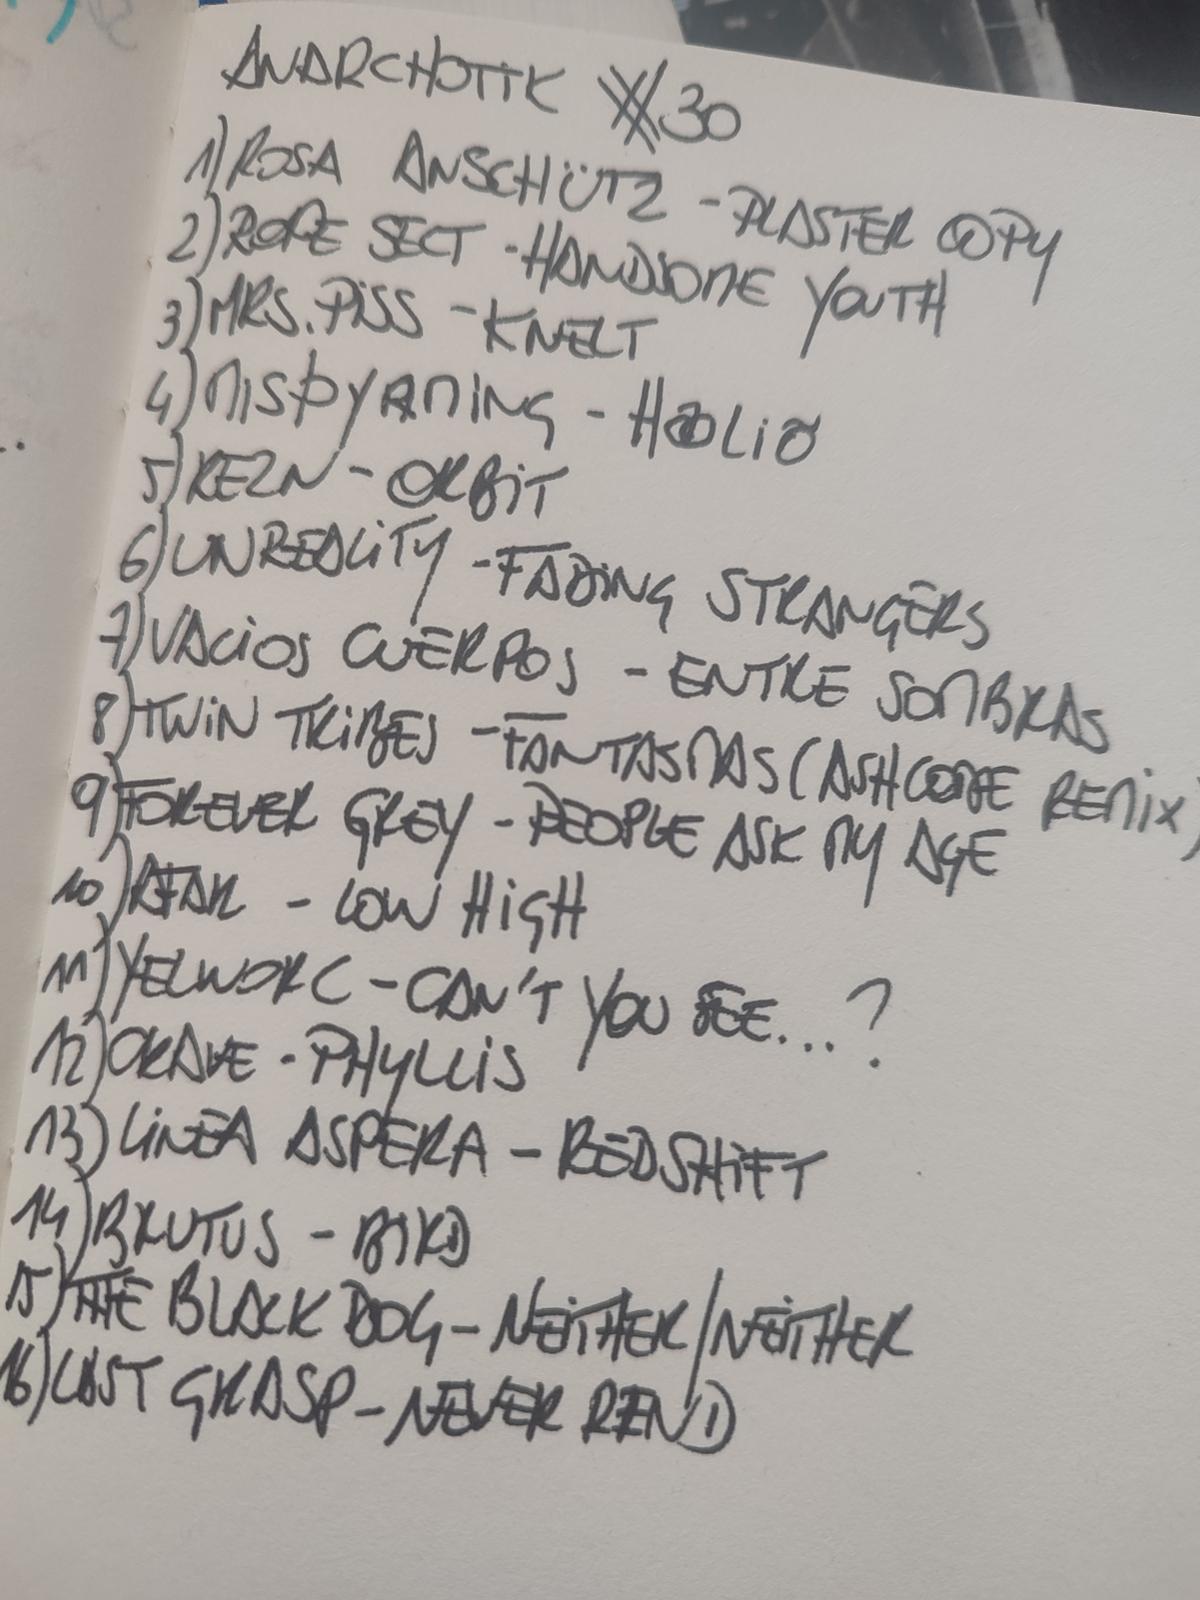 ANARCHOTTK #30
1) ROSA ANSCHÜTZ - PLASTER COPY
2) ROPE SECT - HANDSOME YOUTH
3) MRS. PISS - KNELT
4) MISPYRMING - HOLIO
5) REZN - ORBIT
6) UNREALITY - FADING STRANGERS
7) VACIOS CUERPOS - ENTRE SOMBRAS
8) TWIN TRIBES - FANTASMAS (ASH CODE REMIX)
9) FOREVER GREY - PEOPLE ASK MY AGE
10) AFAR - LOW HIGH
11) YELWORC - CAN'T YOU SEE...?
12) ORAVE - PHYLLIS
13) LINEA ASPERA - REDSHIFT
14) BRUTUS - BIRD
15) THE BLACK DOG - NEITHER/NEITHER
16) LAST GRASP - NEVER REND